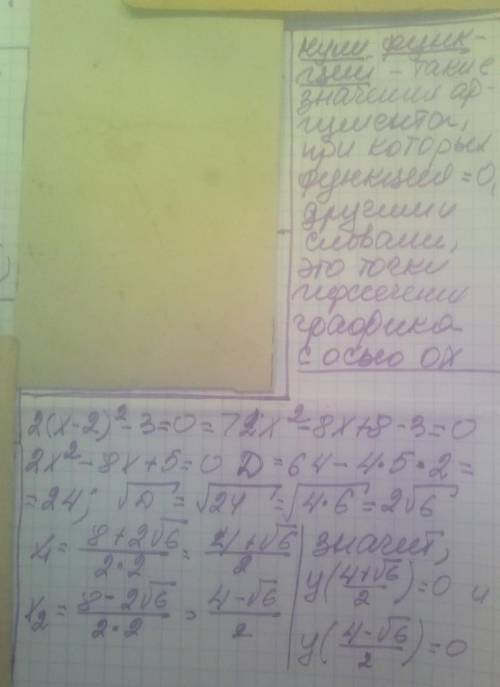 нули функ-
ции - такие
значения ар-
гумента,
при которых
функция = 0,
другими
словами,
это точки
пересечения
графика
с осью ох
2(x-2)² - 3 = 0 => 2x² - 8x + 8 - 3 = 0
2x² - 8x + 5 = 0 D = 64 - 4·5·2 =
= 24; √D = √24 = √4·6 = 2√6
x₁ = (8+2√6)/(2·2) = (4+√6)/2
x₂ = (8-2√6)/(2·2) = (4-√6)/2
значит,
y((4+√6)/2) = 0 и
y((4-√6)/2) = 0